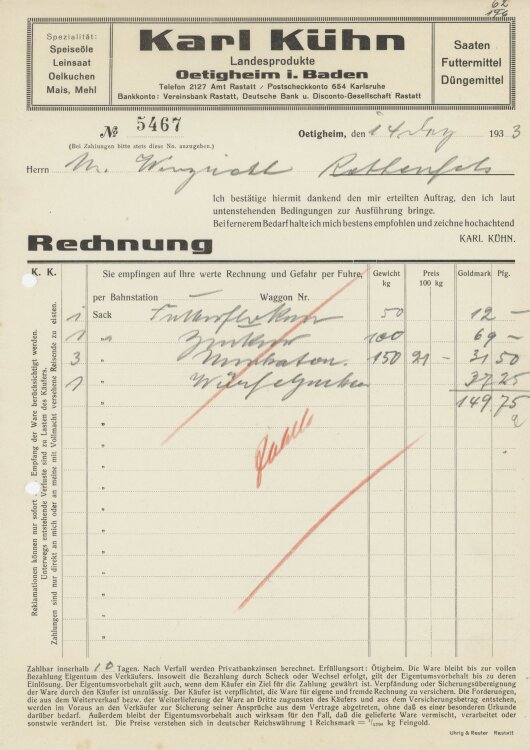 62
176
Spezialität:
Speiseöle
Leinsaat
Oelkuchen
Mais, Mehl
Karl Kühn
Landesprodukte
Oetigheim i. Baden
Telefon 2127 Amt Rastatt / Postscheckkonto 654 Karlsruhe
Bankkonto: Vereinsbank Rastatt, Deutsche Bank u. Disconto-Gesellschaft Rastatt
Saaten
Futtermittel
Düngemittel
№ 5467
(Bei Zahlungen bitte stets diese No. anzugeben.)
Oetigheim, den 14 Dez 1933
Herrn
Rothenfels
Ich bestätige hiermit dankend den mir erteilten Auftrag, den ich laut
untenstehenden Bedingungen zur Ausführung bringe.
Bei fernerem Bedarf halte ich mich bestens empfohlen und zeichne hochachtend
KARL KÜHN.
Rechnung
K. K.
Sie empfingen auf Ihre werte Rechnung und Gefahr per Fuhre,
per Bahnstation — Waggon Nr.
Gewicht kg
Preis 100 kg
Goldmark Pfg.
1 Sack Futterflocken 50 12 —
1 " Zucker 100 69 —
3 " 150 21 — 31 50
1 " 37 25
149,75
Reklamationen können nur sofort b. Empfang der Ware berücksichtigt werden.
Unterwegs entstehende Verluste sind zu Lasten des Käufers.
Zahlungen sind nur direkt an mich oder an meine mit Vollmacht versehene Reisende zu leisten.
Zahlbar innerhalb 10 Tagen. Nach Verfall werden Privatbankzinsen berechnet. Erfüllungsort: Ötigheim. Die Ware bleibt bis zur vollen
Bezahlung Eigentum des Verkäufers. Insoweit die Bezahlung durch Scheck oder Wechsel erfolgt, gilt der Eigentumsvorbehalt bis zu deren
Einlösung. Der Eigentumsvorbehalt gilt auch, wenn dem Käufer ein Ziel für die Zahlung gewährt ist. Verpfändung oder Sicherungsübereignung
der Ware durch den Käufer ist unzulässig. Der Käufer ist verpflichtet, die Ware für eigene und fremde Rechnung zu versichern. Die Forderungen,
die aus dem Weiterverkauf bezw. der Weiterlieferung der Ware an Dritte zugunsten des Käufers und aus dem Versicherungsbetrag entstehen,
werden im Voraus an den Verkäufer zur Sicherung seiner Ansprüche aus dem Vertrage abgetreten, ohne daß es einer besonderen Urkunde
darüber bedarf. Außerdem bleibt der Eigentumsvorbehalt auch wirksam für den Fall, daß die gelieferte Ware vermischt, verarbeitet oder
sonstwie verändert ist. Die Preise verstehen sich in deutscher Reichswährung 1 Reichsmark = 1/2790 kg Feingold.
Uhrig & Reuter Rastatt